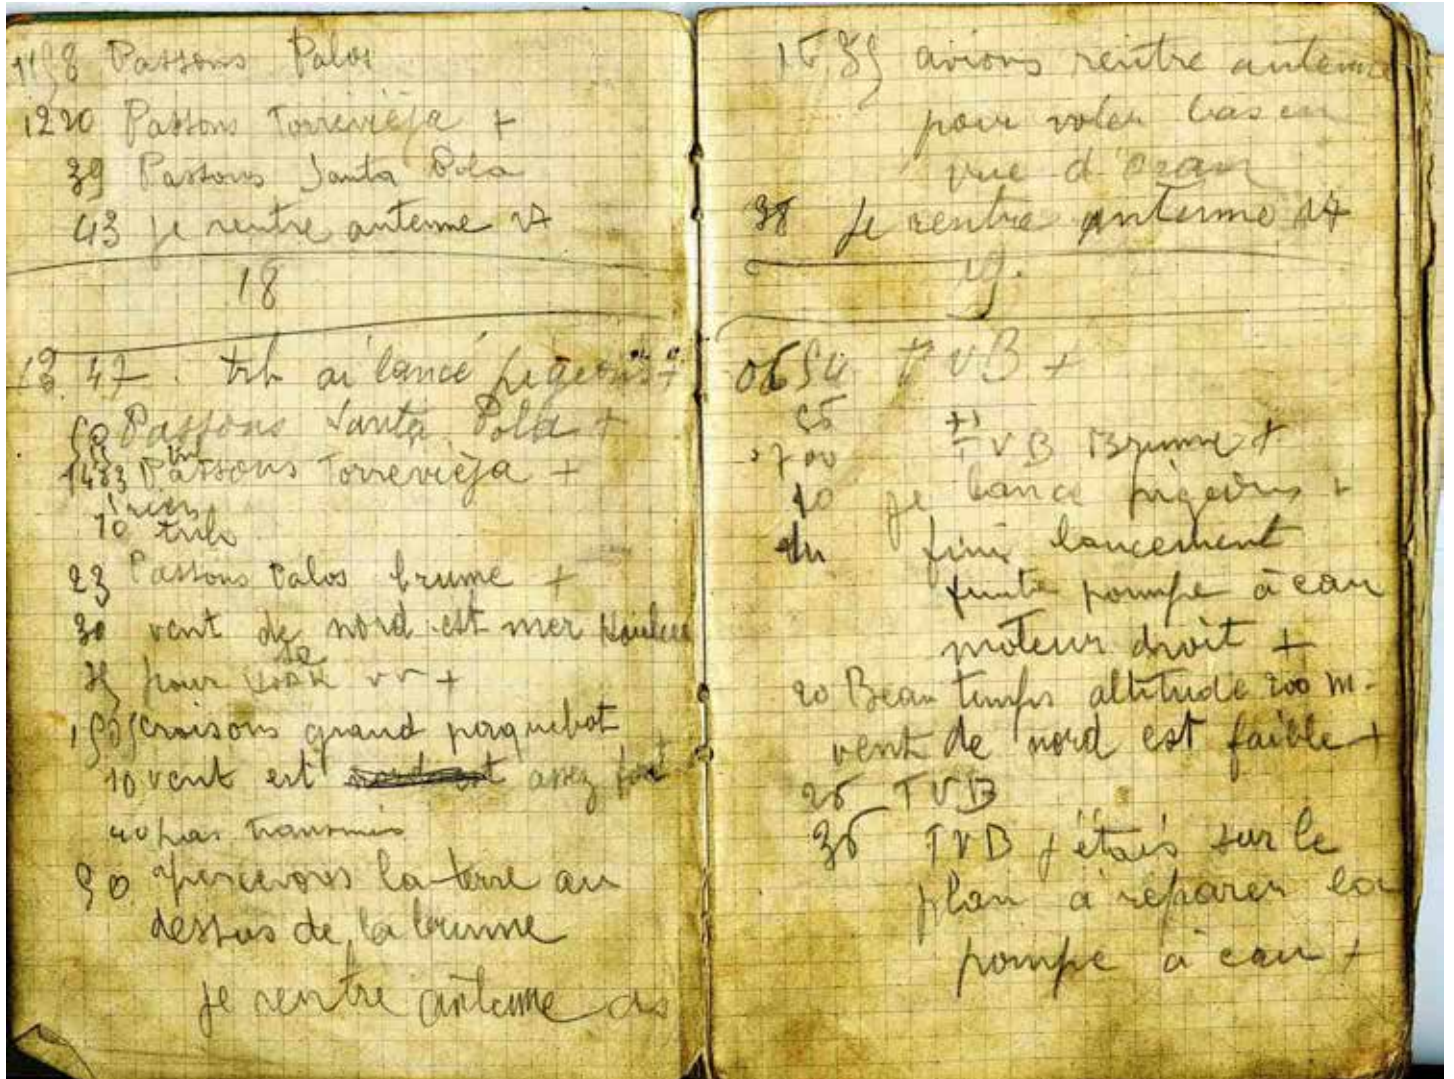 1158 Passons Palos
1220 Passons Torrevieja +
39 Passons Santa Pola
43 je rentre antenne
18
13 47 trb ai lancé pigeons +
59 Passons Santa Pola +
Passons Torrevieja +
rien
10 trb
23 Passons Palos brume +
30 vent de nord est mer houleuse
35 pour
1505 croisons grand paquebot
10 vent est assez fort
40 pas transmis
50 percevons la terre au
dessus de la brume
je rentre antenne as
15,35 avions rentre antenne
pour voler bas en
vue d'oran
38 je rentre antenne
19.
0654 TVB +
55
0700 TVB Brume +
10 je lance pigeons +
du finir lancement
fuite pompe à eau
moteur droit +
20 Beau temps altitude 200 m.
vent de nord est faible +
25 TVB
35 TVB j'étais sur le
plan à réparer la
pompe à eau +